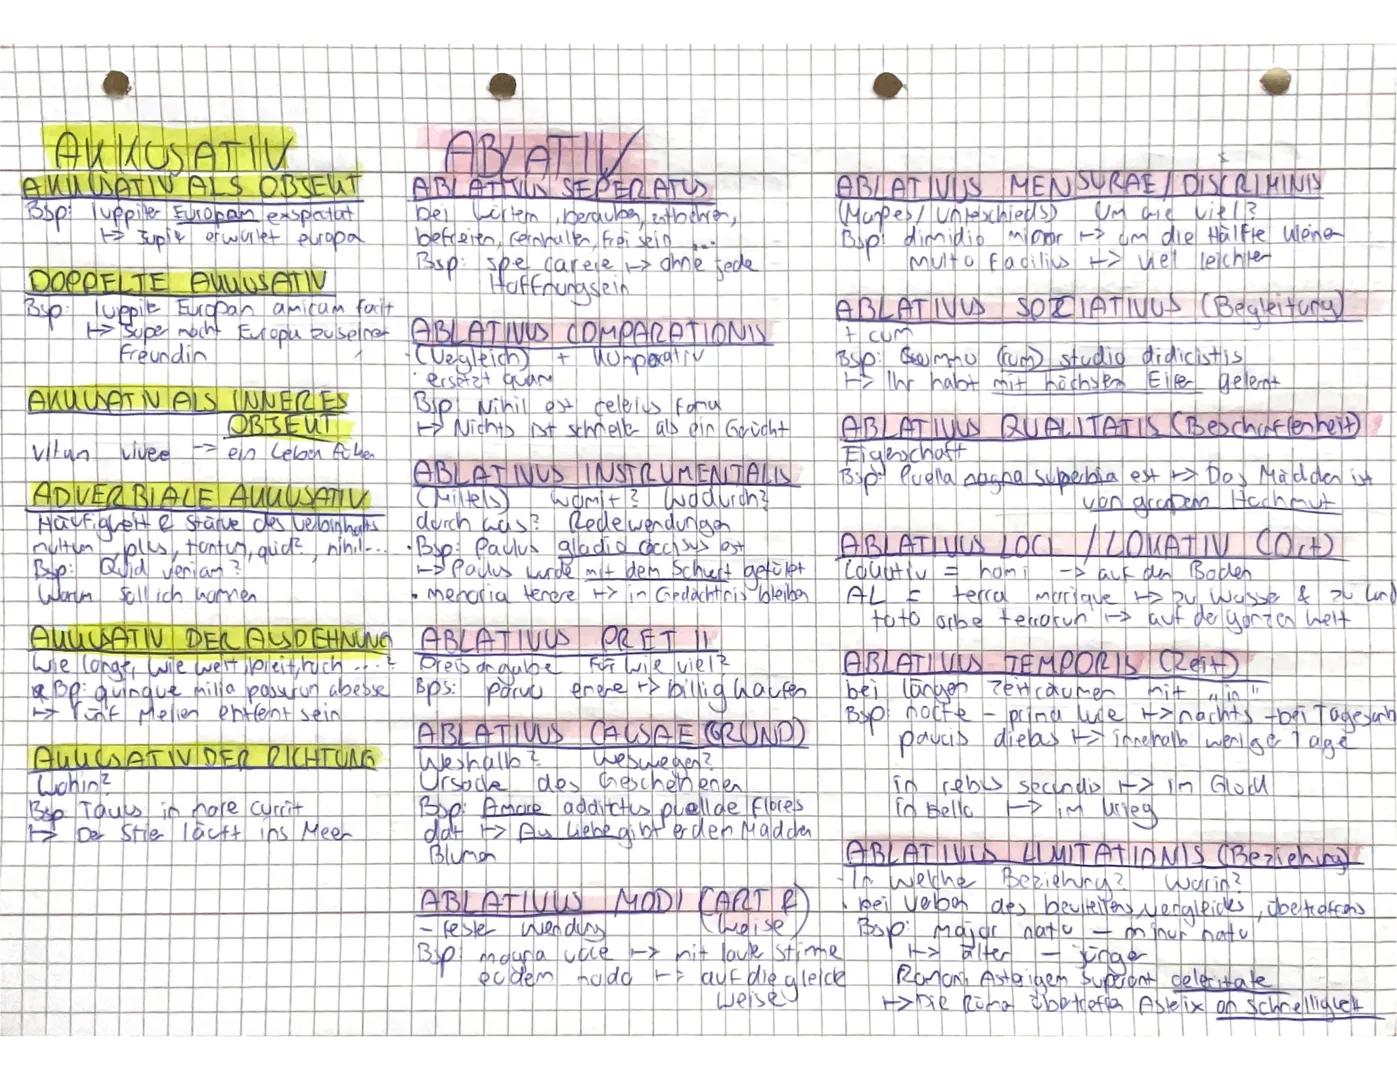 AKKUSATIV
AKKUSATIV ALS OBJEKT
Bsp: Iuppiter Europam exspectat
↦ Jupit erwartet europa
DOPPELTE AKKUSATIV
Bsp: Iuppite Europam amicam facit
↦ Super macht Europa zu seiner
Freundin
AKKUSATIV ALS INNERES
OBJEKT
vitam vivee → ein Leben führen
ADVERBIALE AKKUSATIV
Häufigkeit & stärke des Verbinhalts
multum, plus, tantum, quid?, nihil...
Bsp: Quid veniam?
Warum soll ich kommen
AKKUSATIV DER AUSDEHNUNG
Wie lange, wie weit, breit, hoch ...?
Bp: quinque milia passuum abesse
↦ fünf Meilen entfernt sein
AKKUSATIV DER RICHTUNG
Wohin?
Bsp Taurus in mare currit
↦ Der Stier läuft ins Meer
ABLATIV
ABLATIVUS SEPERATUS
bei Wörtern, berauben, entbehren,
befreien, fernhalten, frei sein ...
Bsp: spe carere ↦ ohne jede
Hoffnung sein
ABLATIVUS COMPARATIONIS
(Vergleich) + Komparativ
· ersetzt quam
Bsp: Nihil est celerius fama
↦ Nichts ist schneller als ein Gerücht
ABLATIVUS INSTRUMENTALIS
(Mittels) womit? Wodurch?
durch was? Redewendungen
· Bsp: Paulus gladio occisus est
↦ Paulus wurde mit dem Schwert getötet
· memoria tenere ↦ in Gedächtnis bleiben
ABLATIVUS PRETII
Preisangabe Für wie viel?
Bps: parvo emere ↦ billig kaufen
ABLATIVUS CAUSAE (GRUND)
Weshalb? Weswegen?
Ursache des Geschehenen
Bsp: Amore addictus puellae flores
dat ↦ Aus Liebe gibt er den Mädchen
Blumen
ABLATIVUS MODI (ART &
- fester Wendung Weise)
Bsp: magna voce ↦ mit laute Stimme
eodem modo ↦ auf die gleiche
Weise
ABLATIVUS MENSURAE / DISCRIMINIS
(Maßes / Unterschieds) Um wie viel?
Bsp: dimidio minor ↦ um die Hälfte kleiner
multo facilius ↦ viel leichter
ABLATIVUS SOZIATIVUS (Begleitung)
+ cum
Bsp: Summo (cum) studio didicistis
↦ Ihr habt mit höchstem Eifer gelernt
ABLATIVUS QUALITATIS (Beschaffenheit)
Eigenschaft
Bsp: Puella magna superbia est ↦ Das Mädchen ist
von großem Hochmut
ABLATIVUS LOCI / LOKATIV (Ort)
Lokativ = homi → auf den Boden
AL = terra marique ↦ zu Wasse & zu Land
toto orbe terrarum ↦ auf der ganzen Welt
ABLATIVUS TEMPORIS (Zeit)
bei längen Zeiträumen mit "in"
Bsp: nocte - prima luce ↦ nachts - bei Tagesanb
paucis diebus ↦ innerhalb weniger Tage
in rebus secundis ↦ im Glück
in Bello ↦ im Krieg
ABLATIVUS LIMITATIONIS (Beziehung)
· In welche Beziehung? Worin?
· bei Verben des beurteilens, vergleichs, übertreffens
Bsp: major natu - minur natu
↦ älter - jünger
Romani Asterigem superant celeritate
↦ Die Römer übertreffen Asterix an Schnelligkeit